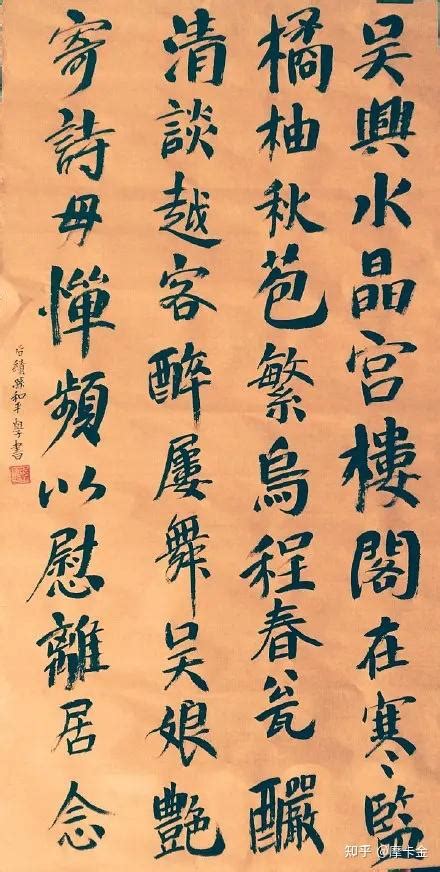 吴興水晶宫樓閣在寒監
橘柚秋苞繁烏程春瓮釅
清談越客醉屢舞吴娘艷
寄詩毋惮頻以慰離居念
和平
書
知乎 @摩卡金